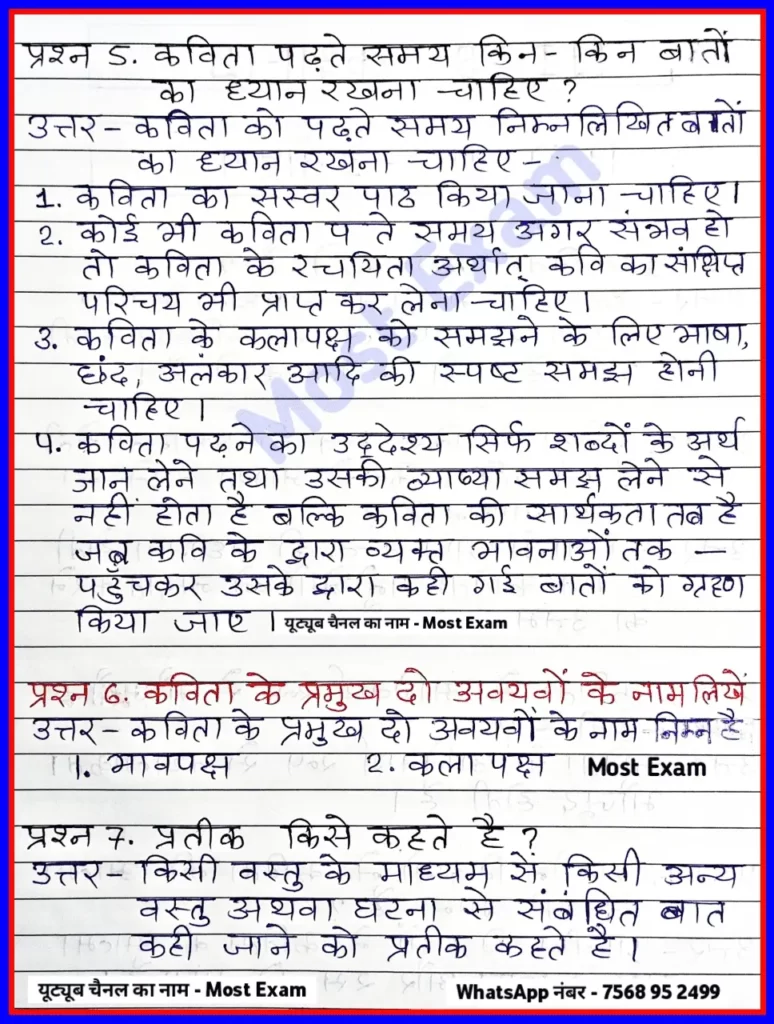 प्रश्न 5. कविता पढ़ते समय किन- किन बातों
का ध्यान रखना चाहिए ?
उत्तर - कविता को पढ़ते समय निम्नलिखित बातों
का ध्यान रखना चाहिए -
1. कविता का सस्वर पाठ किया जाना चाहिए।
2. कोई भी कविता प ते समय अगर संभव हो
तो कविता के रचयिता अर्थात् कवि का संक्षिप्त
परिचय भी प्राप्त कर लेना चाहिए।
3. कविता के कलापक्ष को समझने के लिए भाषा,
छंद, अलंकार आदि की स्पष्ट समझ होनी
चाहिए।
4. कविता पढ़ने का उद्देश्य सिर्फ शब्दों के अर्थ
जान लेने तथा उसकी व्याख्या समझ लेने से
नहीं होता है बल्कि कविता की सार्थकता तब है
जब कवि के द्वारा व्यक्त भावनाओं तक -
पहुँचकर उसके द्वारा कही गई बातों को ग्रहण
किया जाए । यूट्यूब चैनल का नाम - Most Exam
प्रश्न 6. कविता के प्रमुख दो अवयवों के नाम लिखें
उत्तर - कविता के प्रमुख दो अवयवों के नाम निम्न है
1. भावपक्ष 2. कला पक्ष Most Exam
प्रश्न 7. प्रतीक किसे कहते है ?
उत्तर - किसी वस्तु के माध्यम से किसी अन्य
वस्तु अथवा घटना से संबंधित बात
कही जाने को प्रतीक कहते है।
यूट्यूब चैनल का नाम - Most Exam WhatsApp नंबर - 7568 95 2499
Most Exam